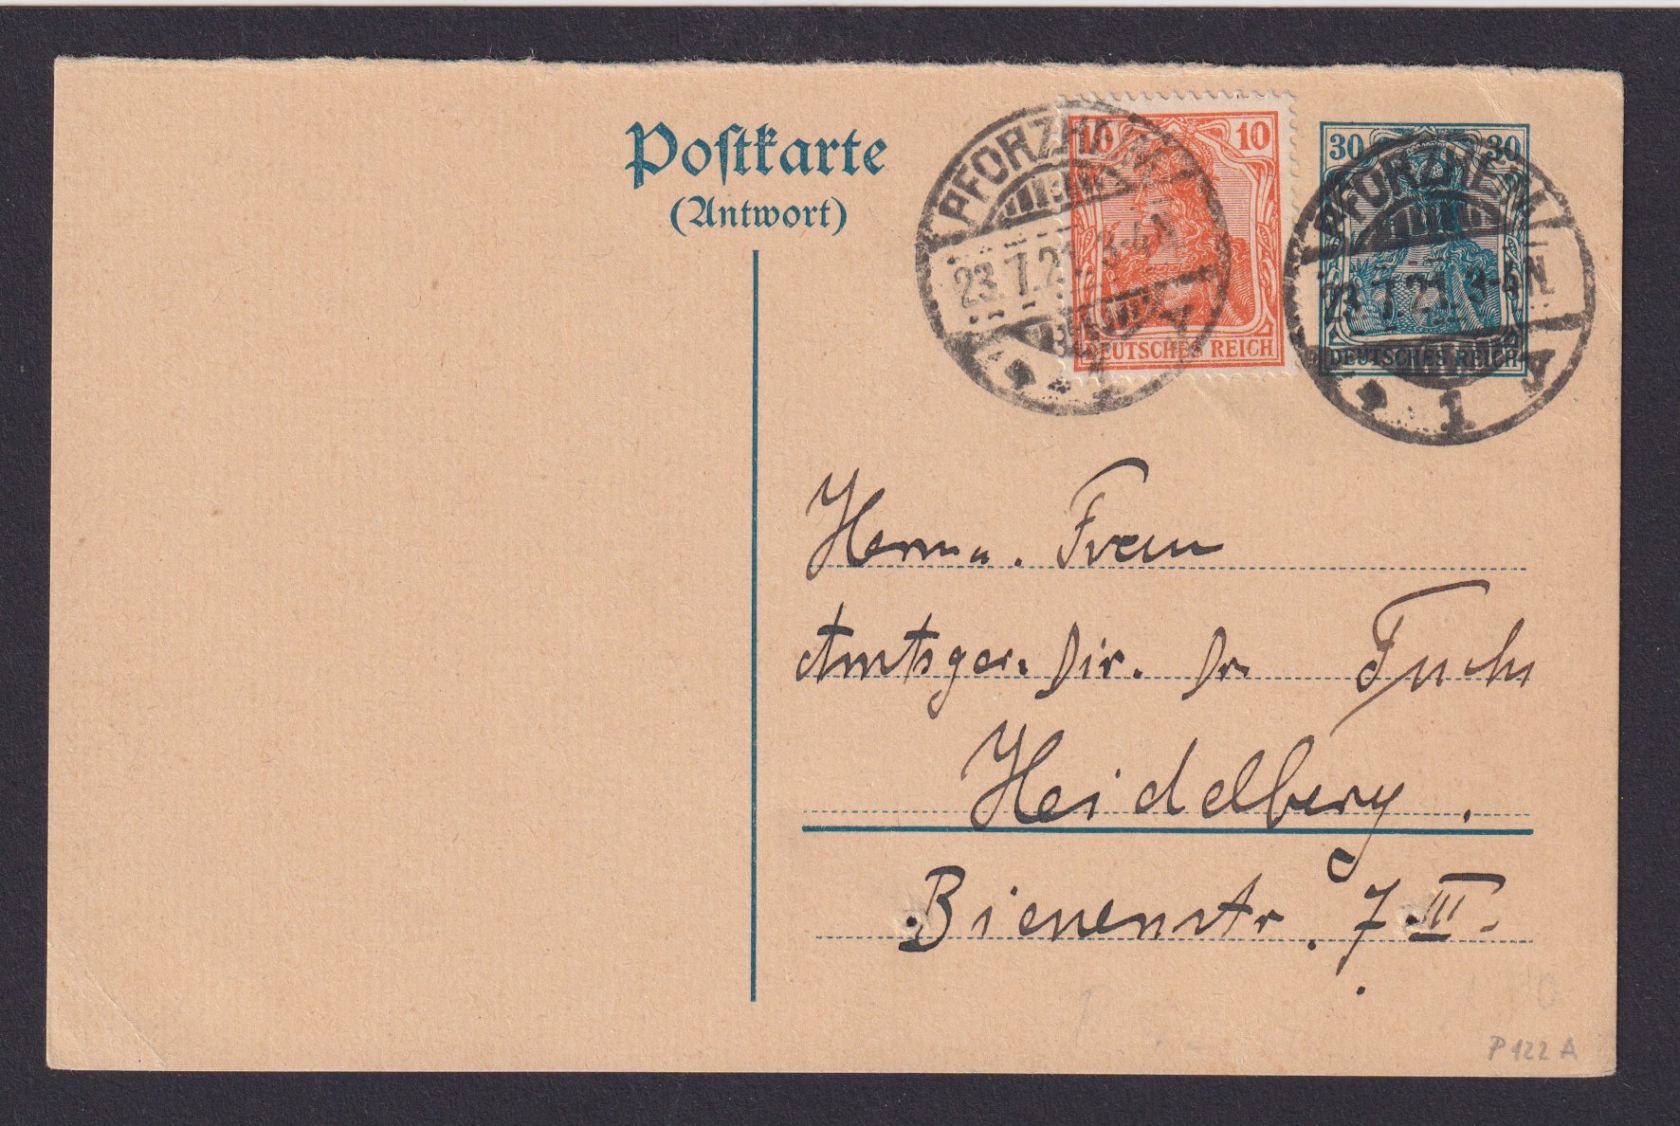 Postkarte
(Antwort)
10 10
DEUTSCHES REICH
30 30
DEUTSCHES REICH
PFORZHEIM
23.7.21. 3-4N
* 1
PFORZHEIM
23.7.21. 3-4N
* 1
Frau
Amtsger. Dir. Dr. Fuchs
Heidelberg.
Bienenstr. 7 III.
P 122 A